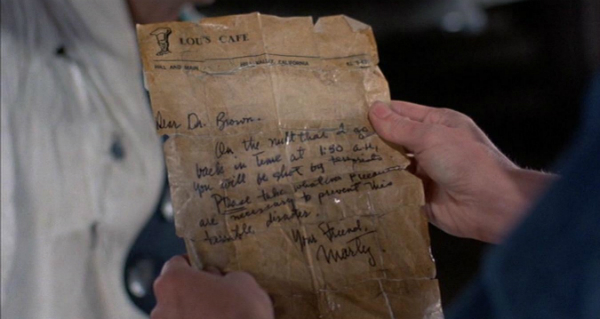 LOU'S CAFE
HILL VALLEY, CALIFORNIA
Dear Dr. Brown,
On the night that I go
back in time at 1:30 a.m.,
you will be shot by terrorists.
Please take whatever precautions
are necessary to prevent this
terrible disaster.
Your Friend,
Marty.